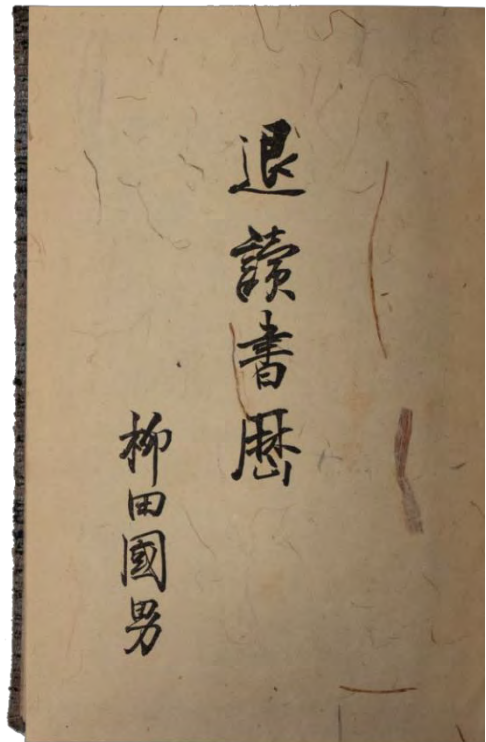 退讀書歷
柳田國男